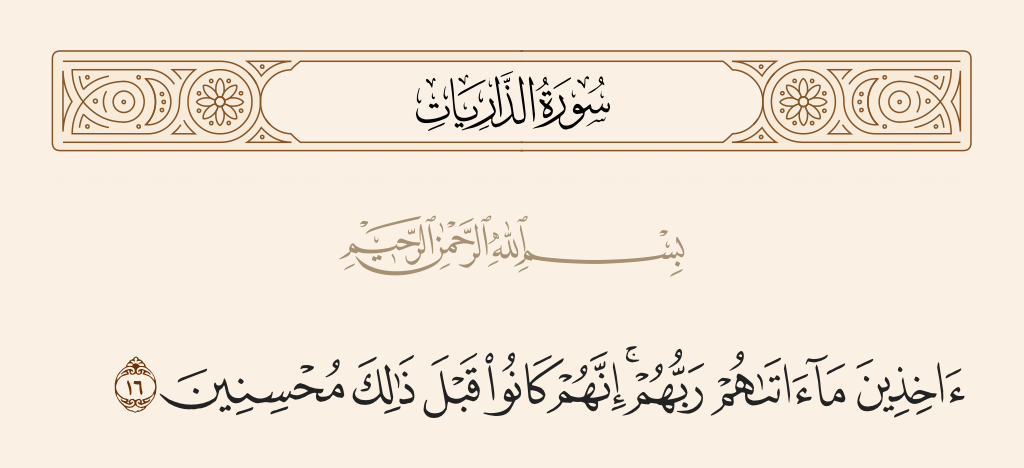 سُورَةُ الذَّارِيَاتِ
بِسْمِ ٱللَّهِ ٱلرَّحْمَٰنِ ٱلرَّحِيمِ
ءَاخِذِينَ مَآ ءَاتَىٰهُمْ رَبُّهُمْ ۚ إِنَّهُمْ كَانُوا۟ قَبْلَ ذَٰلِكَ مُحْسِنِينَ ١٦